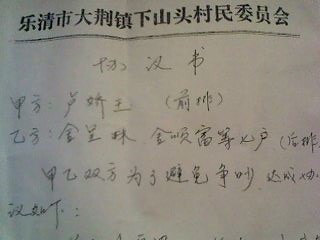 乐清市大荆镇下山头村民委员会
协议书
甲方:卢娇玉 (前排)
乙方:金呈 金顺富等七户(后排
甲乙双方为了避免争吵,达成协
议如下: